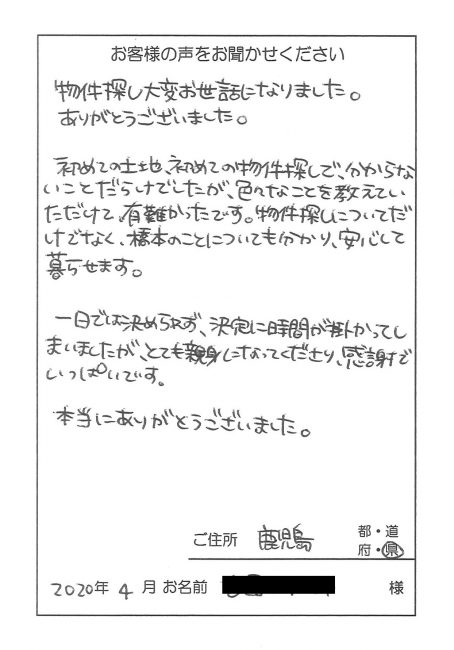 お客様の声をお聞かせください
物件探し大変お世話になりました。
ありがとうございました。
初めての土地、初めての物件探しで、分からな
いことだらけでしたが、色々なことを教えてい
ただけて、有難かったです。物件探しについてだ
けでなく、橋本のことについても分かり、安心して
暮らせます。
一日では決められず、決定に時間が掛かってし
まいましたが、とても親身になってくださり、感謝で
いっぱいです。
本当にありがとうございました。
ご住所 鹿児島 都・道
府・県
2020年 4月 お名前 様